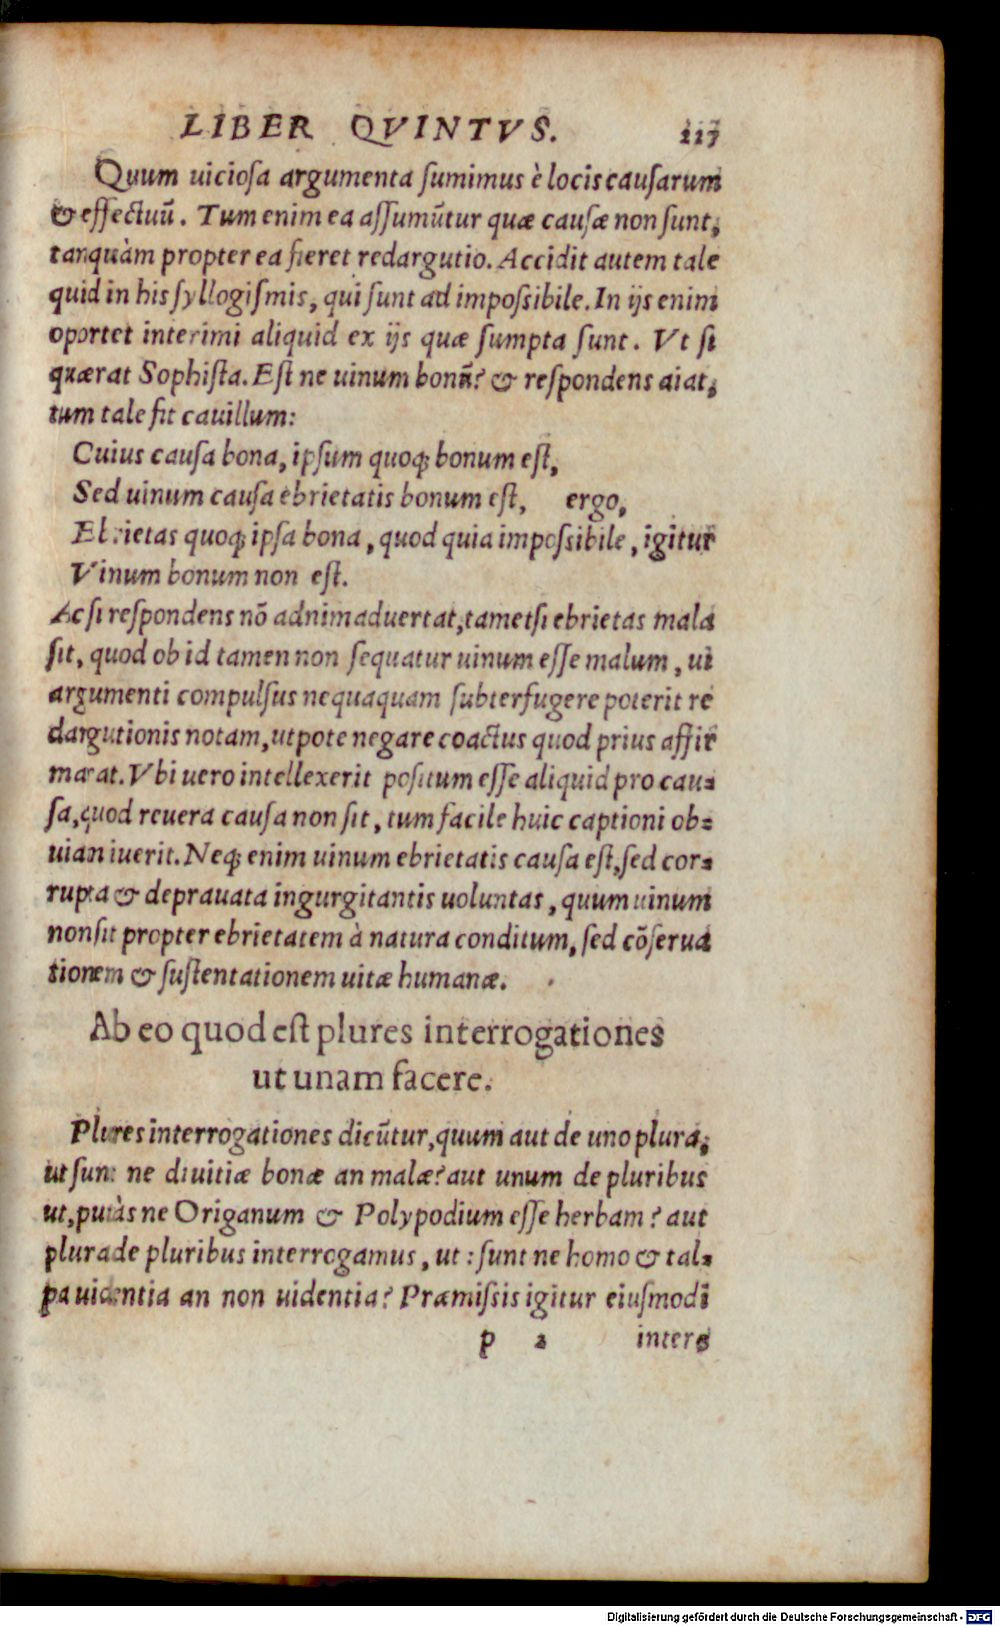 LIBER QVINTVS. 117
Quum uiciosa argumenta sumimus è locis causarum
& effectuũ. Tum enim ea assumũtur quæ causæ non sunt,
tanquàm propter ea fieret redargutio. Accidit autem tale
quid in his syllogismis, qui sunt ad impossibile. In ijs enim
oportet interimi aliquid ex ijs quæ sumpta sunt. Vt si
quærat Sophista. Est ne uinum bonũ? & respondens aiat,
tum tale fit cauillum:
Cuius causa bona, ipsum quoq; bonum est,
Sed uinum causa ebrietatis bonum est, ergo,
Ebrietas quoq; ipsa bona, quod quia impossibile, igitur
Vinum bonum non est.
Ac si respondens nõ adnimaduertat, tametsi ebrietas mala
sit, quod ob id tamen non sequatur uinum esse malum, ui
argumenti compulsus nequaquam subterfugere poterit re
dargutionis notam, utpote negare coactus quod prius affir
marat. Vbi uero intellexerit positum esse aliquid pro cau-
sa, quod reuera causa non sit, tum facile huic captioni ob-
uian iuerit. Neq; enim uinum ebrietatis causa est, sed cor-
rupta & deprauata ingurgitantis uoluntas, quum uinum
non sit propter ebrietatem à natura conditum, sed cõserua
tionem & sustentationem uitæ humanæ.
Ab eo quod est plures interrogationes
ut unam facere.
Plures interrogationes dicũtur, quum aut de uno plura,
ut sunt ne diuitiæ bonæ an malæ? aut unum de pluribus
ut, putàs ne Origanum & Polypodium esse herbam? aut
plura de pluribus interrogamus, ut: sunt ne homo & tal-
pa uidentia an non uidentia? Præmissis igitur eiusmodi
p 2 inter-
Digitalisierung gefördert durch die Deutsche Forschungsgemeinschaft - DFG